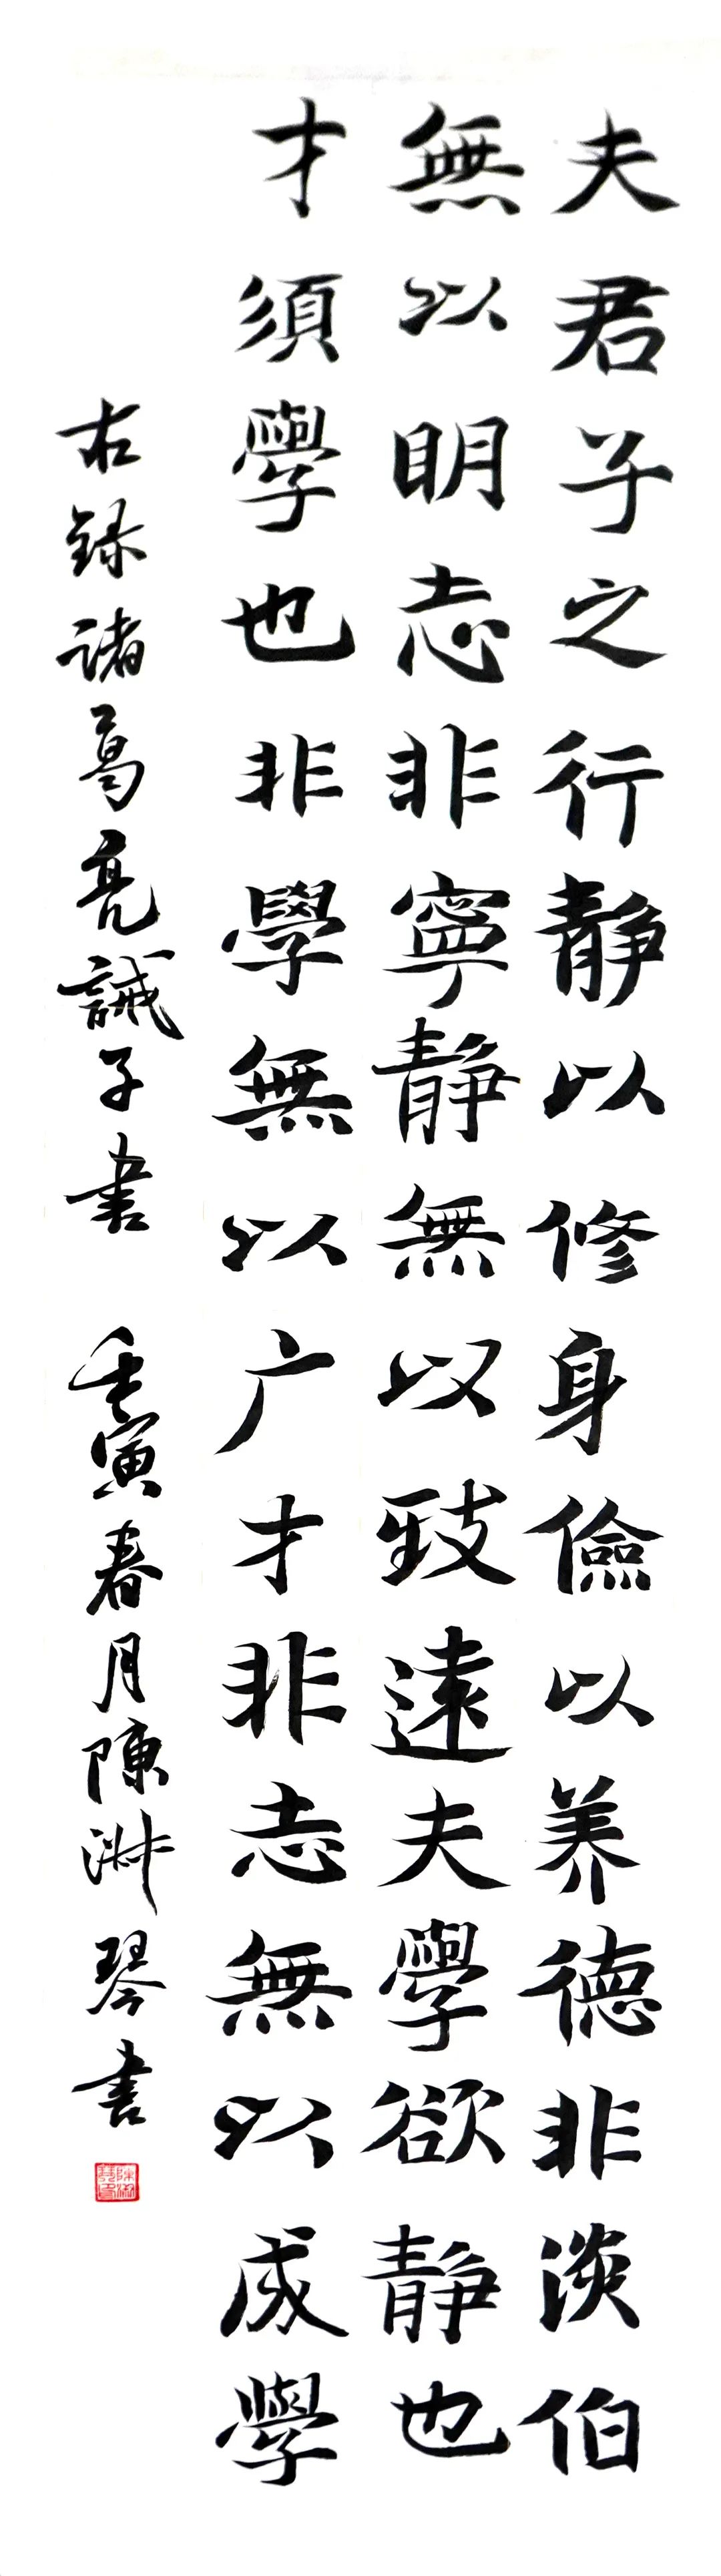 夫君子之行静以修身儉以养德非淡伯
無以明志非寧静無以致遠夫學欲静也
才須學也非學無以广才非志無以成學
右録諸葛亮誡子書 壬寅春月陳琴書